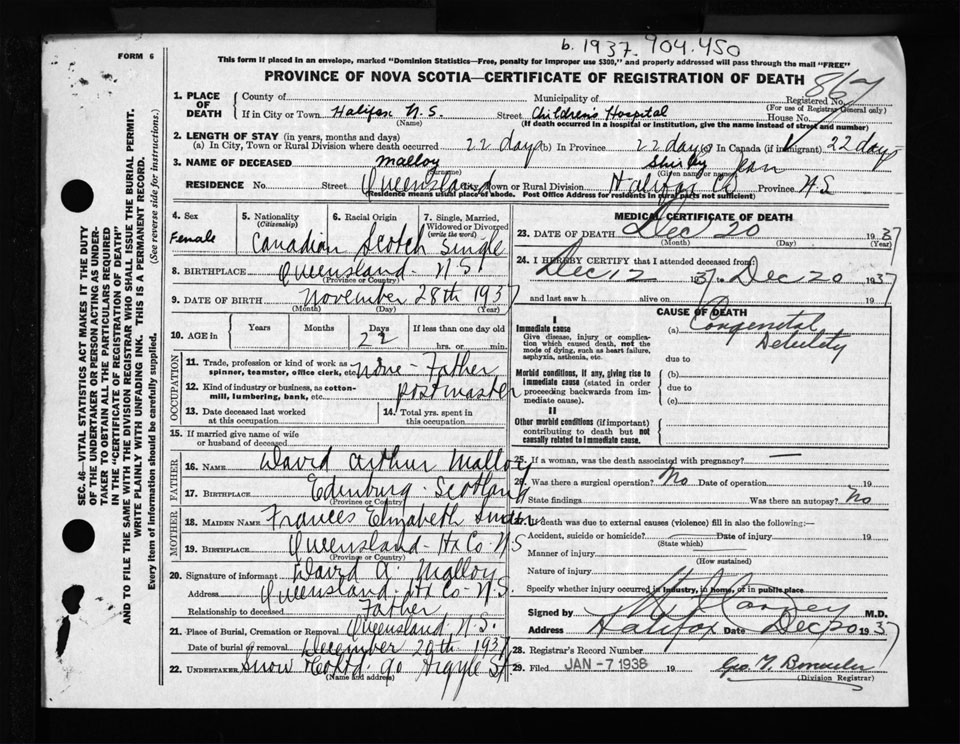 b. 1937. 904.450
FORM 6
This form if placed in an envelope, marked "Dominion Statistics—Free, penalty for improper use $300," and properly addressed will pass through the mail "FREE"
PROVINCE OF NOVA SCOTIA—CERTIFICATE OF REGISTRATION OF DEATH
867
1. PLACE OF DEATH
County of Municipality of Registered No.
(For use of Registrar General only)
If in City or Town Halifax N.S. Street Childrens Hospital House No.
(Name) (If death occurred in a hospital or institution, give the name instead of street and number)
2. LENGTH OF STAY (in years, months and days)
(a) In City, Town or Rural Division where death occurred 22 days (b) In Province 22 days (c) In Canada (if immigrant) 22 days
3. NAME OF DECEASED Malloy Shirley Jean
(Surname) (Given name or names)
RESIDENCE No. Street Queensland City, Town or Rural Division Halifax Co Province N.S
(Residence means usual place of abode. Post Office Address for residents in rural parts not sufficient)
4. Sex
Female
5. Nationality
(Citizenship)
Canadian
6. Racial Origin
Scotch
7. Single, Married, Widowed or Divorced
(write the word)
Single
8. BIRTHPLACE Queensland - N.S.
(Province or Country)
9. DATE OF BIRTH November 28th 1937
(Month) (Day) (Year)
10. AGE in
Years Months Days If less than one day old
22 hrs. or min.
OCCUPATION
11. Trade, profession or kind of work as spinner, teamster, office clerk, etc. none - Father
12. Kind of industry or business, as cotton-mill, lumbering, bank, etc. postmaster
13. Date deceased last worked at this occupation
14. Total yrs. spent in this occupation
15. If married give name of wife or husband of deceased
FATHER
16. NAME David Arthur Malloy
17. BIRTHPLACE Edinburg - Scotland
(Province or Country)
MOTHER
18. MAIDEN NAME Frances Elizabeth
19. BIRTHPLACE Queensland - Hx Co - N S
(Province or Country)
20. Signature of informant David A. Malloy
Address Queensland - Hx Co - N.S.
Relationship to deceased Father
21. Place of Burial, Cremation or Removal Queensland N.S.
Date of burial or removal December 20th 1937
22. UNDERTAKER Snow & Co Ltd. 90 Argyle St
(Name and address)
MEDICAL CERTIFICATE OF DEATH
23. DATE OF DEATH Dec 20 1937
(Month) (Day) (Year)
24. I HEREBY CERTIFY that I attended deceased from:
Dec 12 1937 to Dec 20 1937
and last saw h alive on 19
CAUSE OF DEATH
I
Immediate cause
Give disease, injury or complication which caused death, not the mode of dying, such as heart failure, asphyxia, asthenia, etc.
(a) Congenital Debility
due to
Morbid conditions, if any, giving rise to immediate cause (stated in order proceeding backwards from immediate cause).
(b)
due to
(c)
II
Other morbid conditions (if important) contributing to death but not causally related to immediate cause.
25. If a woman, was the death associated with pregnancy? —
26. Was there a surgical operation? No Date of operation 19
State findings Was there an autopsy? No
27. If death was due to external causes (violence) fill in also the following:—
Accident, suicide or homicide? Date of injury 19
(State which)
Manner of injury
(How sustained)
Nature of injury
Specify whether injury occurred in industry, in home, or in public place
Signed by M.D.
Address Halifax Date Dec 20 1937
28. Registrar's Record Number
29. Filed JAN - 7 1938 19
(Division Registrar)
SEC. 46—VITAL STATISTICS ACT MAKES IT THE DUTY
OF THE UNDERTAKER OR PERSON ACTING AS UNDER-
TAKER TO OBTAIN ALL THE PARTICULARS REQUIRED
IN THE "CERTIFICATE OF REGISTRATION OF DEATH"
AND TO FILE THE SAME WITH THE DIVISION REGISTRAR WHO SHALL ISSUE THE BURIAL PERMIT.
WRITE PLAINLY WITH UNFADING INK. THIS IS A PERMANENT RECORD.
Every item of information should be carefully supplied. (See reverse side for instructions.)